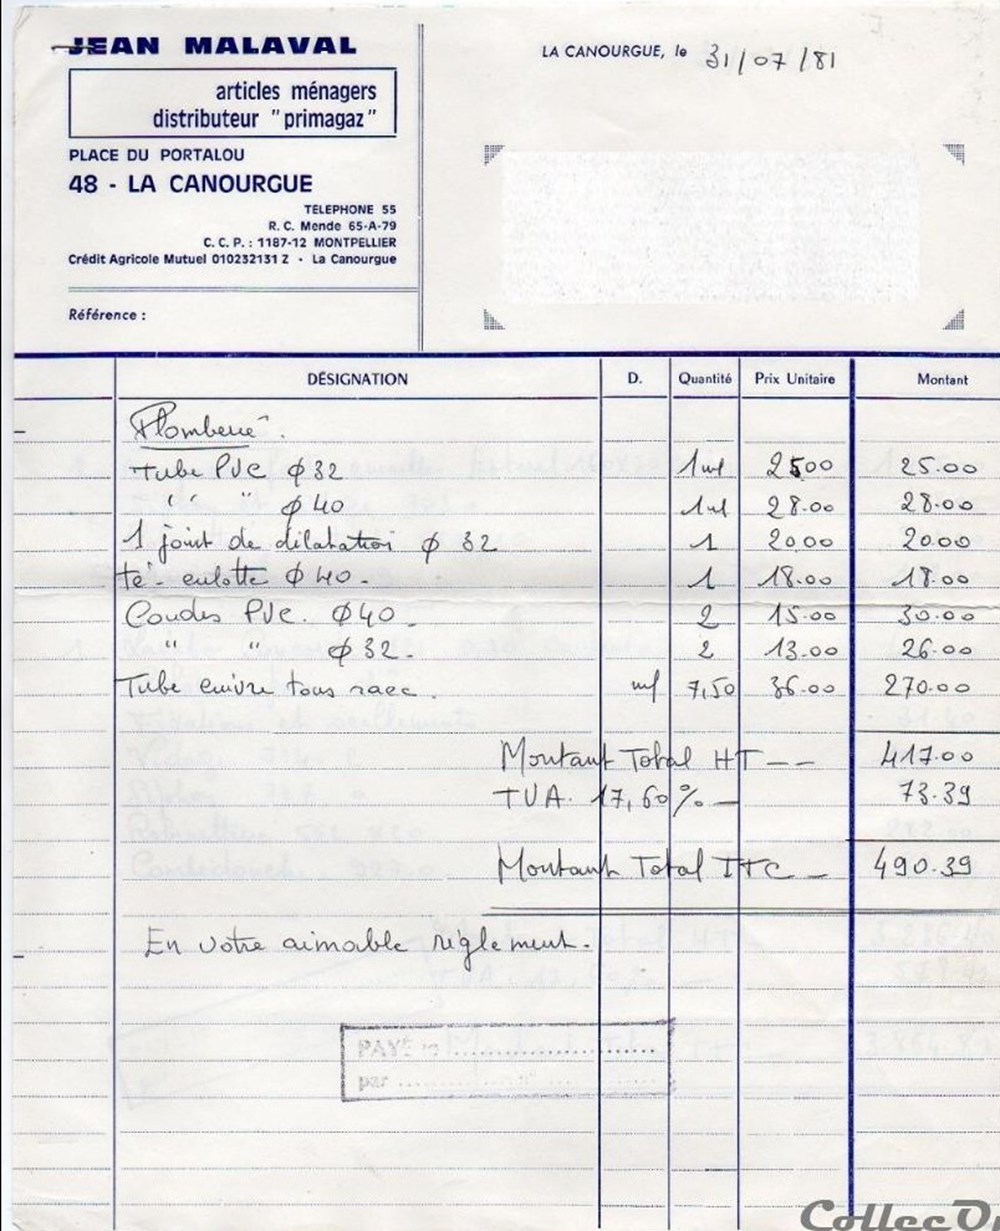 JEAN MALAVAL
articles ménagers
distributeur "primagaz"
PLACE DU PORTALOU
48 - LA CANOURGUE
TELEPHONE 55
R. C. Mende 65-A-79
C. C. P. : 1187-12 MONTPELLIER
Crédit Agricole Mutuel 010232131 Z - La Canourgue
Référence :
LA CANOURGUE, le 31/07/81
DÉSIGNATION D. Quantité Prix Unitaire Montant
Plomberie.
Tube PVC φ 32 1 ml 25.00 25.00
" " φ 40 1 ml 28.00 28.00
1 joint de dilatation φ 32 1 20.00 20.00
té culotte φ 40 - 1 18.00 18.00
Coudes PVC. φ 40 - 2 15.00 30.00
" " φ 32 - 2 13.00 26.00
Tube cuivre tous racc. ml 7,50 36.00 270.00
Montant Total HT -- 417.00
TVA. 17,60% - 73.39
Montant Total TTC - 490.39
En votre aimable règlement.
PAYÉ le
par